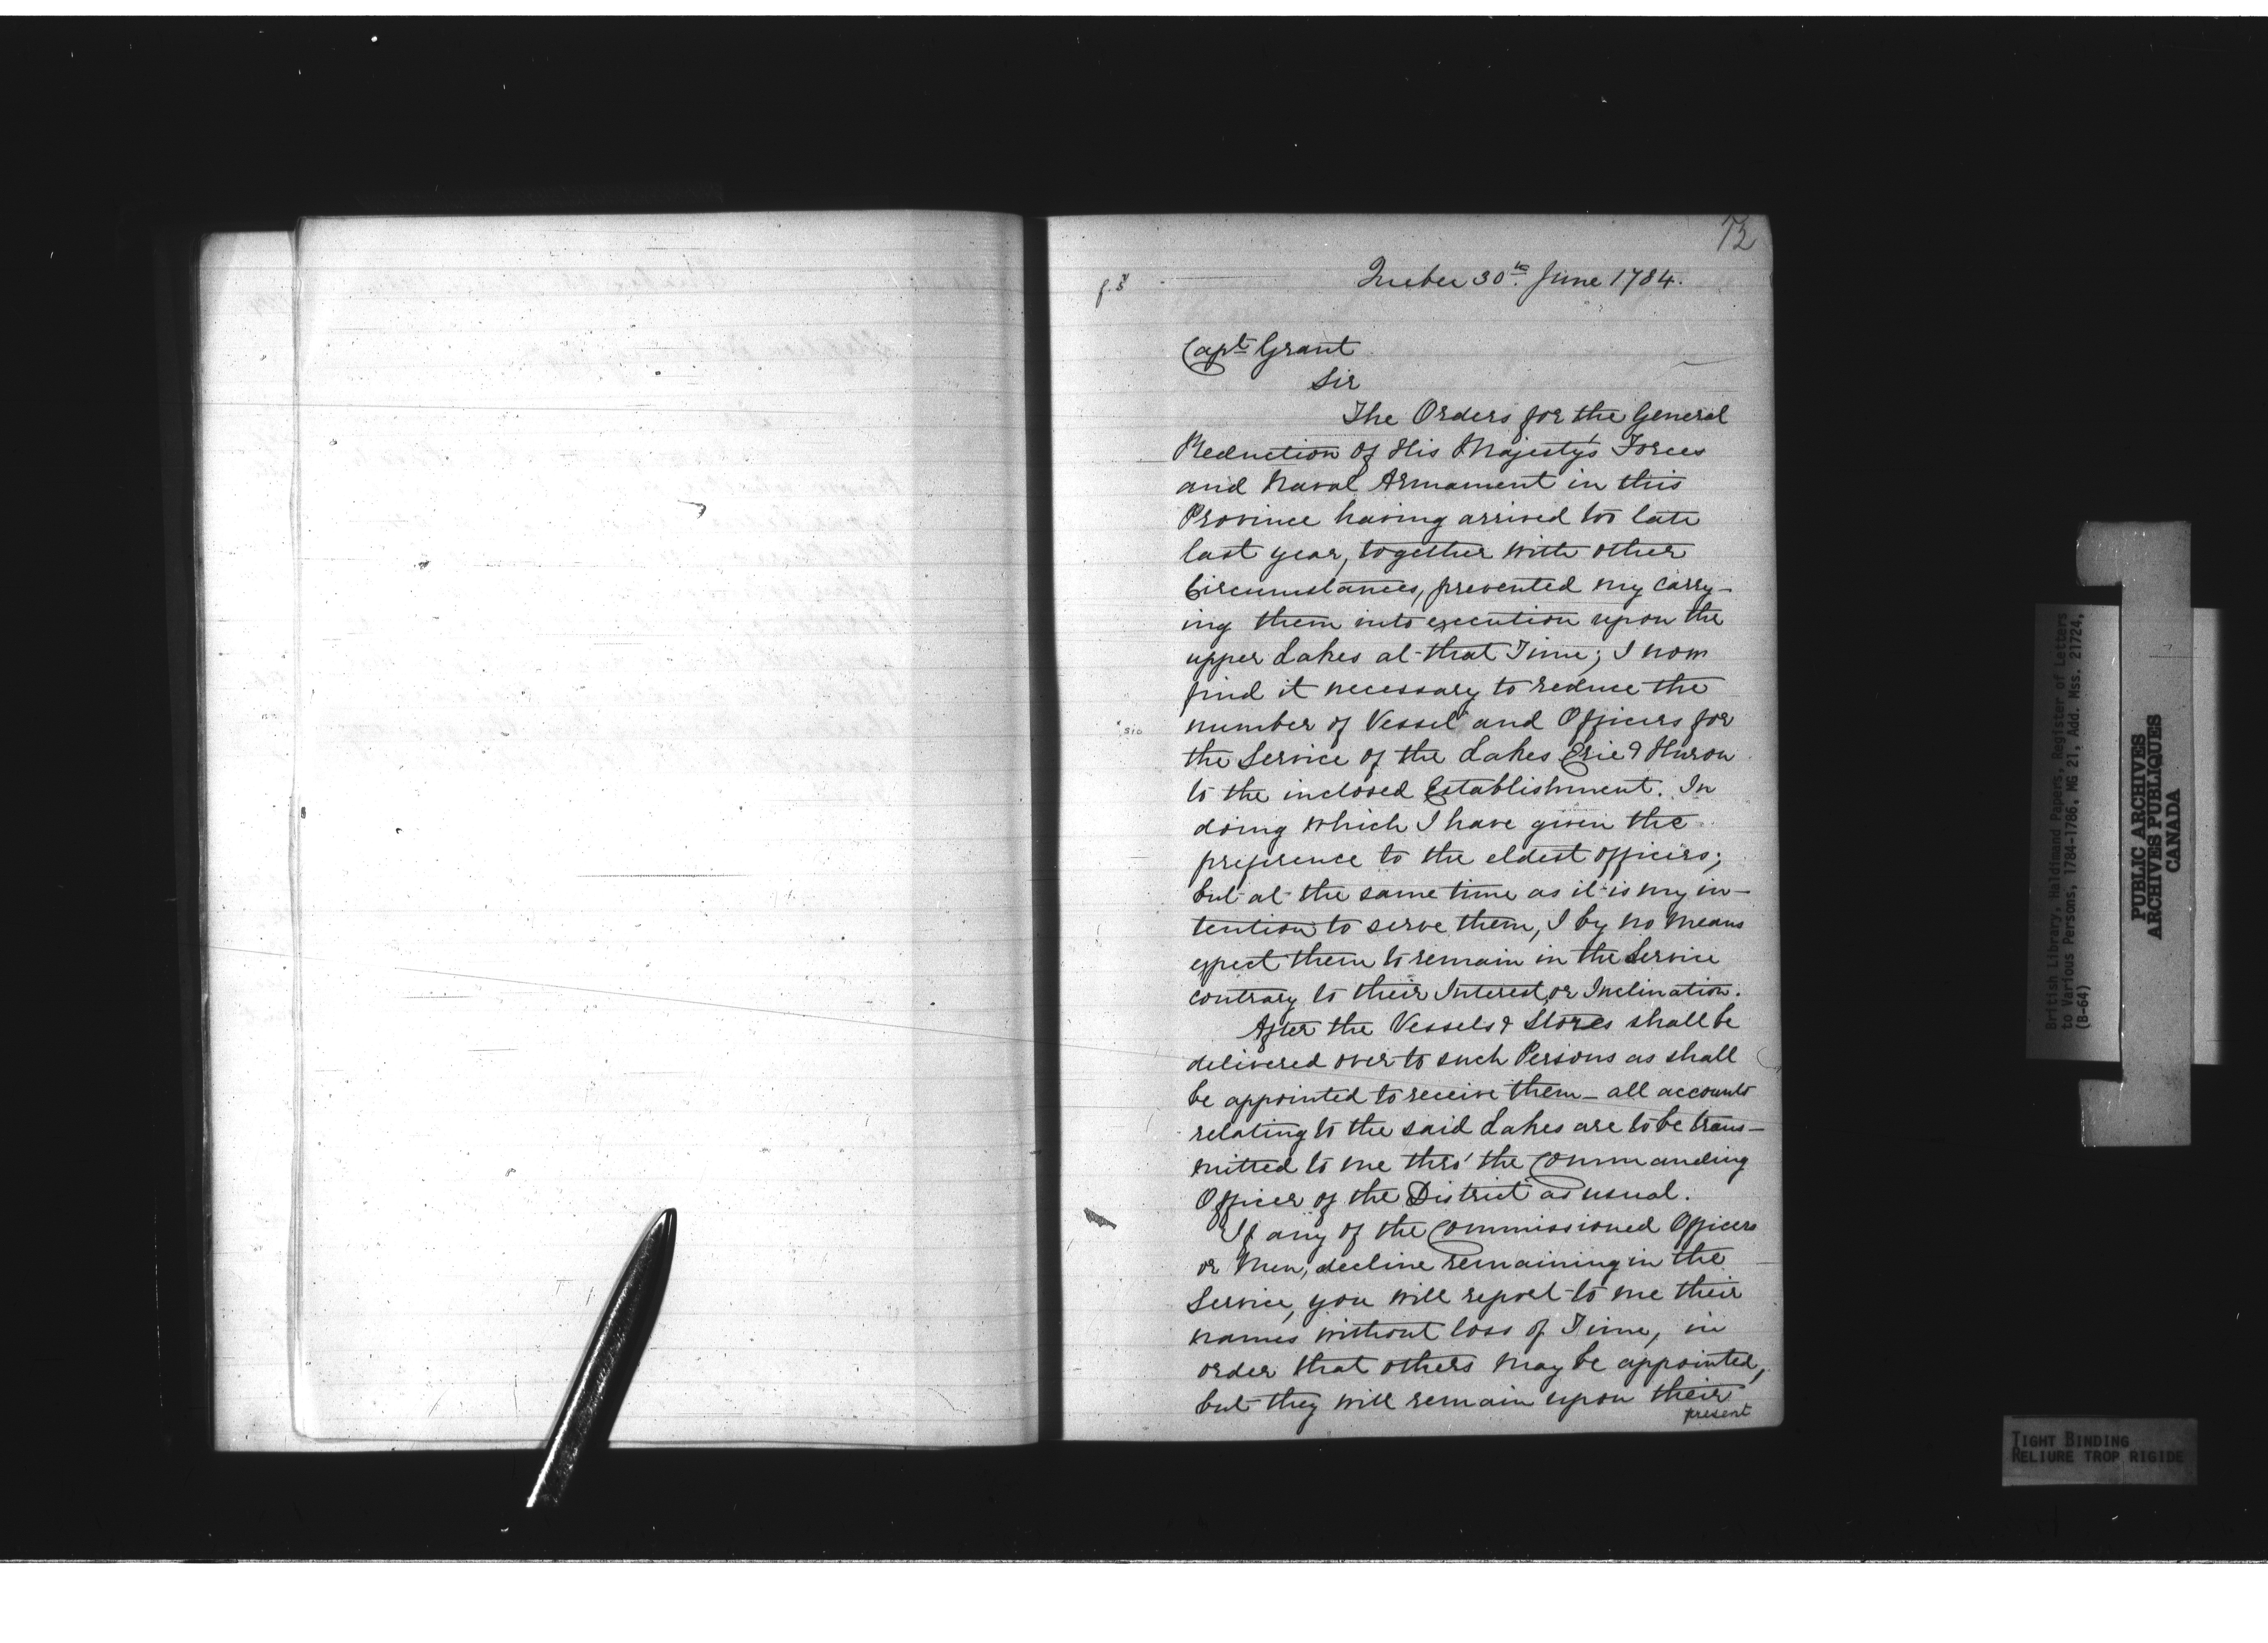 72
f. 8
Quebec 30th. June 1784.
Capt Grant
Sir
The Orders for the General
Reduction of His Majesty's Forces
and Naval Armament in this
Province having arrived too late
last year, together with other
Circumstances, prevented my carry-
ing them into execution upon the
upper Lakes at that Time; I now
find it necessary to reduce the
sic
number of Vessel and Officers for
the Service of the Lakes Erie & Huron
to the inclosed Establishment. In
doing which I have given the
preference to the eldest officers;
but at the same time as it is my in-
tention to serve them, I by no means
expect them to remain in the Service
contrary to their Interest, or Inclination.
After the Vessels & Stores shall be
delivered over to such Persons as shall
be appointed to receive them - all accounts
relating to the said Lakes are to be trans-
mitted to me thro' the Commanding
Officer of the District as usual.
If any of the Commissioned Officers
or Men, decline remaining in the
Service, you will report to me their
names without loss of Time, in
order that others may be appointed,
but they will remain upon their
present
British Library, Haldimand Papers, Register of Letters
to Various Persons, 1784-1786, MG 21, Add. Mss. 21724,
(B-64)
PUBLIC ARCHIVES
ARCHIVES PUBLIQUES
CANADA
TIGHT BINDING
RELIURE TROP RIGIDE